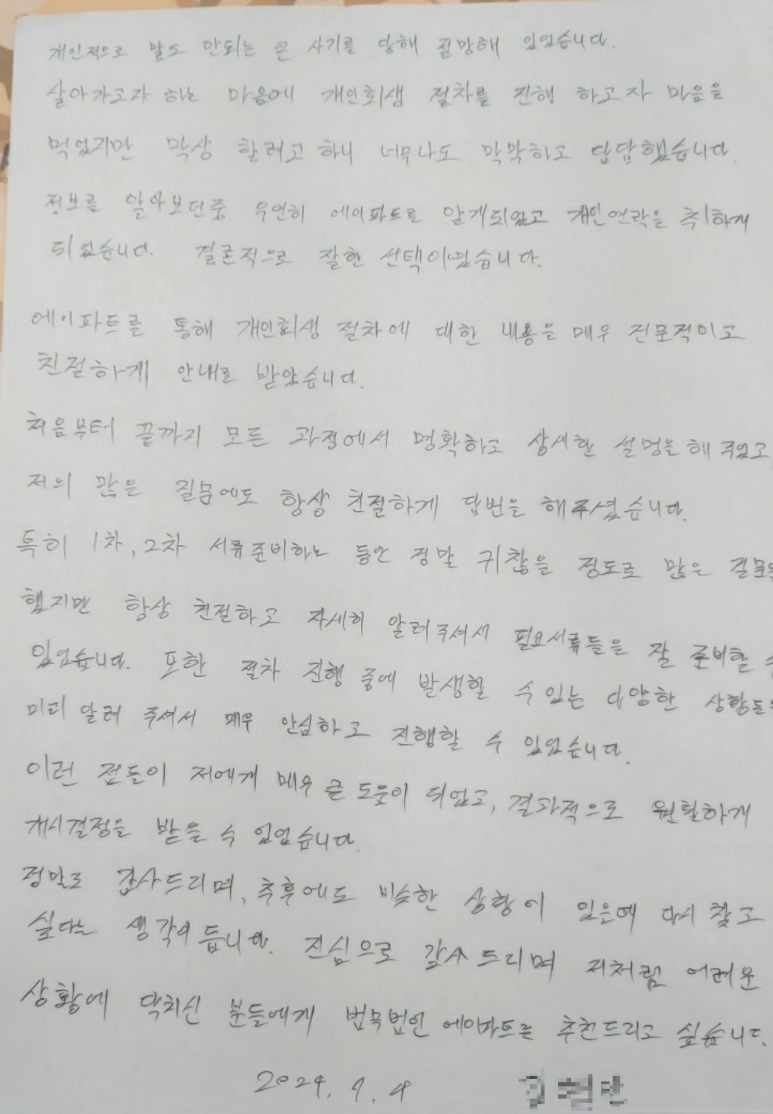 개인적으로 말도 안되는 큰 사기를 당해 절망해 있었습니다.
살아가고자 하는 마음에 개인회생 절차를 진행 하고자 마음을
먹었지만 막상 할려고 하니 너무나도 막막하고 답답했습니다.
정보를 알아보던중 우연히 에이파트를 알게되었고 개인연락을 취하게
되었습니다. 결론적으로 잘한 선택이었습니다.
에이파트를 통해 개인회생 절차에 대한 내용을 매우 전문적이고
친절하게 안내를 받았습니다.
처음부터 끝까지 모든 과정에서 명확하고 상세한 설명을 해 주었고
저의 많은 질문에도 항상 친절하게 답변을 해주셨습니다.
특히 1차, 2차 서류준비하는 동안 정말 귀찮을 정도로 많은 질문을
했지만 항상 친절하고 자세히 알려주셔서 필요서류들을 잘 준비할 수
있었습니다. 또한 절차 진행 중에 발생할 수 있는 다양한 상황들을
미리 알려 주셔서 매우 안심하고 진행할 수 있었습니다.
이런 점들이 저에게 매우 큰 도움이 되었고, 결과적으로 원활하게
개시결정을 받을 수 있었습니다.
정말로 감사드리며, 추후에도 비슷한 상황이 있은때 다시 찾고
싶다는 생각이 듭니다. 진심으로 감사 드리며 저처럼 어려운
상황에 닥치신 분들에게 법무법인 에이파트를 추천드리고 싶습니다.
2024. 9. 4